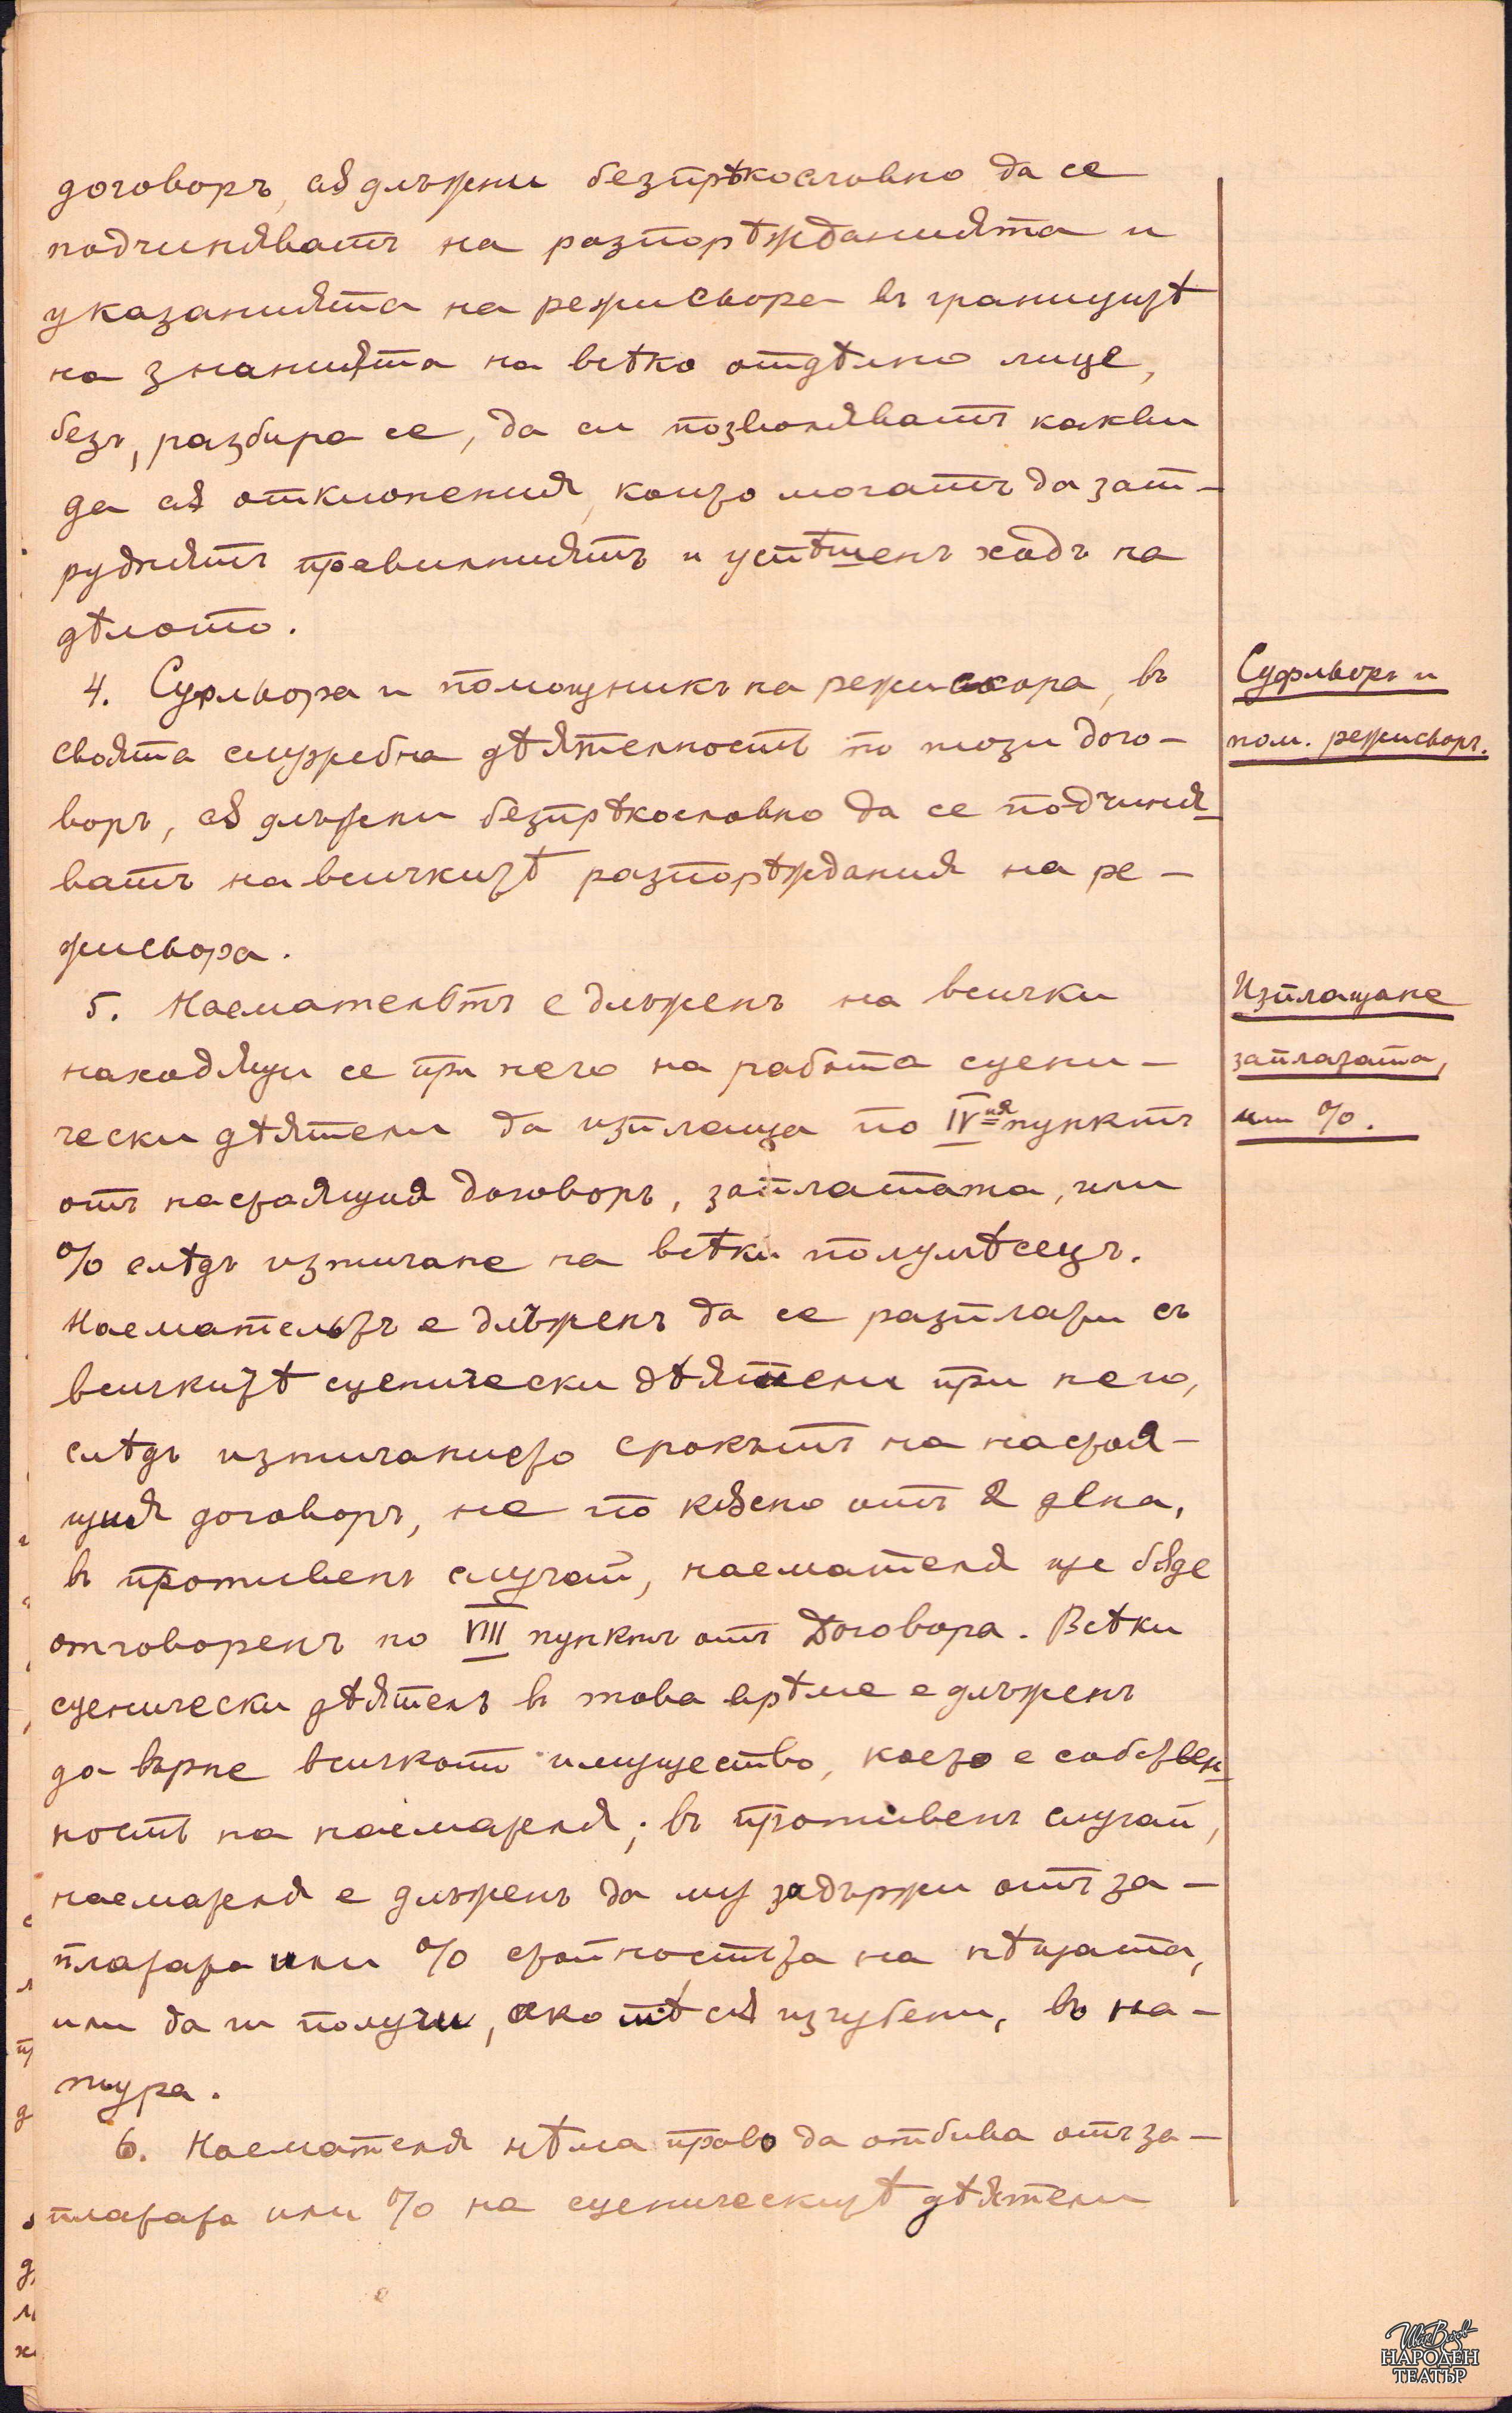 договоръ, сѫ длъжни безпрѣкословно да се
подчиняватъ на разпорѣжданията и
указанията на режисьора въ границитѣ
на знанията на всѣко отдѣлно лице,
безъ, разбира се, да си позволяватъ какви
да сѫ отклонения, които могатъ да зат-
руднятъ правилниятъ и успѣшенъ ходъ на
дѣлото.
4. Суфльора и помощникъ на режисьора, въ
своята служебна дѣятелность по този дого-
воръ, сѫ длъжни безпрѣкословно да се подчиня-
ватъ на всичкитѣ разпорѣждания на ре-
жисьора.
Суфльоръ и
пом. режисьоръ.
5. Наемательтъ е длъженъ на всички
находящи се при него на работа сцени-
чески дѣятели да изплаща по IV=ия пунктъ
отъ настоящия договоръ, заплатата, или
% слѣдъ изтичане на всѣки полумѣсецъ.
Наемательтъ е длъженъ да се разплати съ
всичкитѣ сценически дѣятели при него,
слѣдъ изтичанието срокътъ на настоя-
щия договоръ, не по кѫсно отъ 2 дена,
въ противенъ случай, наемателя ще бѫде
отговоренъ по VIII пунктъ отъ Договора. Всѣки
сценически дѣятель въ това врѣме е длъженъ
да върне всичкото имущество, което е собствен-
ность на наемателя; въ противенъ случай,
наемателя е длъженъ да му задържи отъ за-
платата или % стойностьта на нѣщата,
или да ги получи, ако тѣ сѫ изгубени, въ на-
тура.
Изплащане
заплатата,
или %.
6. Наемателя нѣма право да отбива отъ за-
платата или % на сценическитѣ дѣятели
Иван Вазов
НАРОДЕН
ТЕАТЪР